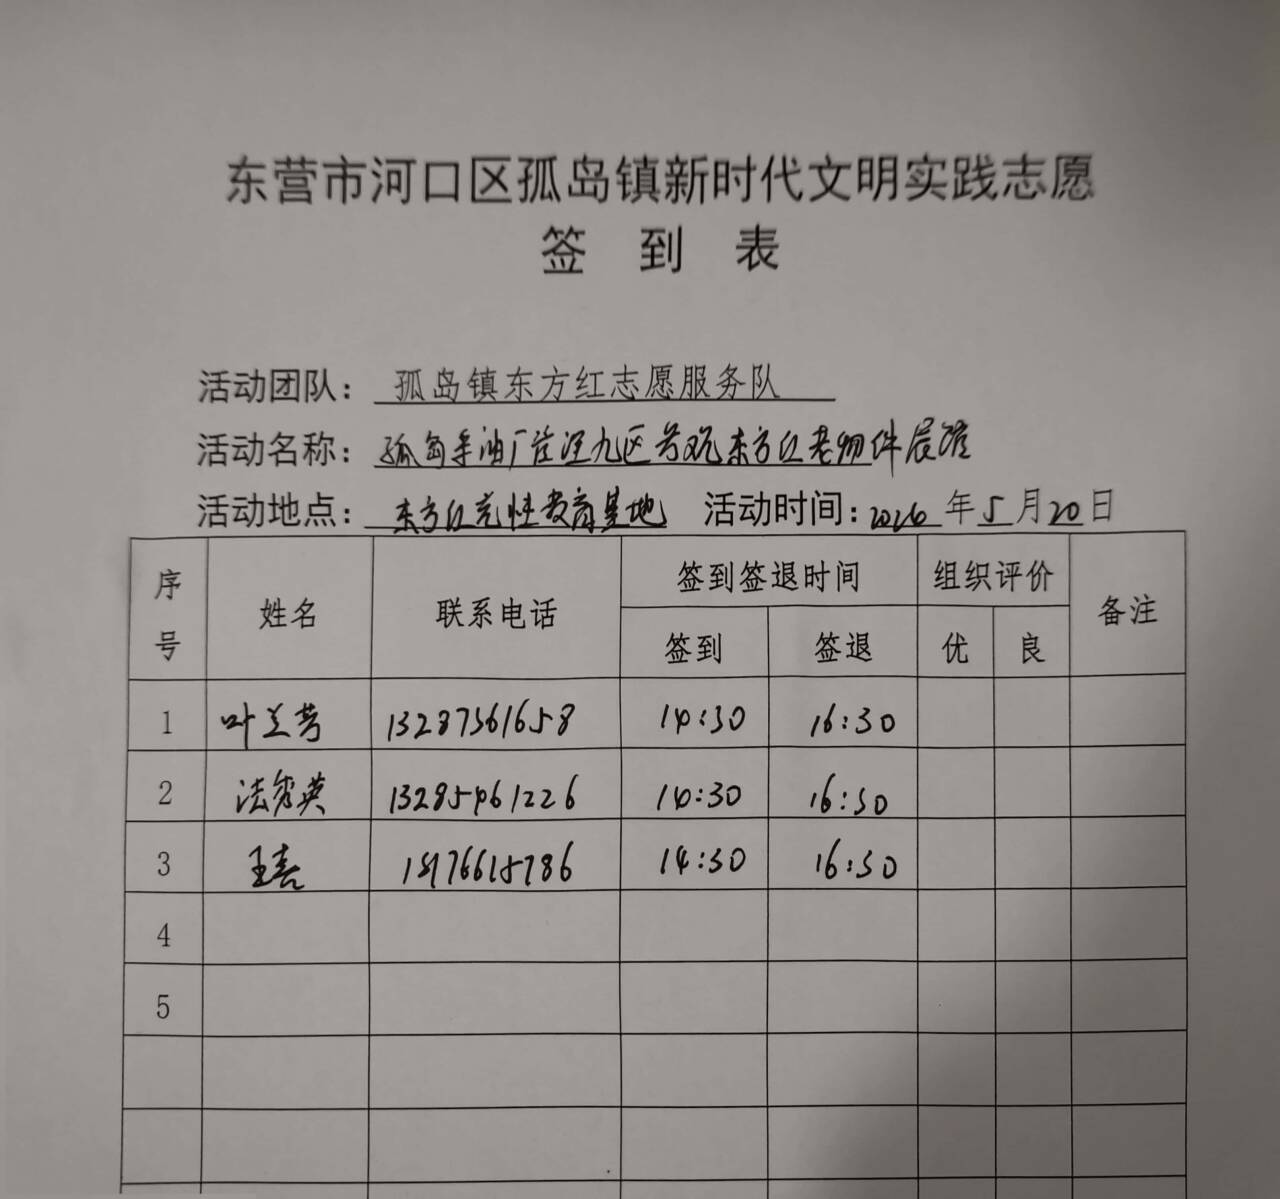 东营市河口区孤岛镇新时代文明实践志愿
签 到 表
活动团队： 孤岛镇东方红志愿服务队
活动名称： 孤岛采油厂管理九区参观东方红老物件展馆
活动地点： 东方红党性教育基地 活动时间：2026年5月20日
序号 姓名 联系电话 签到签退时间 组织评价 备注
签到 签退 优 良
1 叶兰芳 13287361658 14:30 16:30
2 法秀英 13285461226 14:30 16:30
3 王喜 15176615786 14:30 16:30
4
5